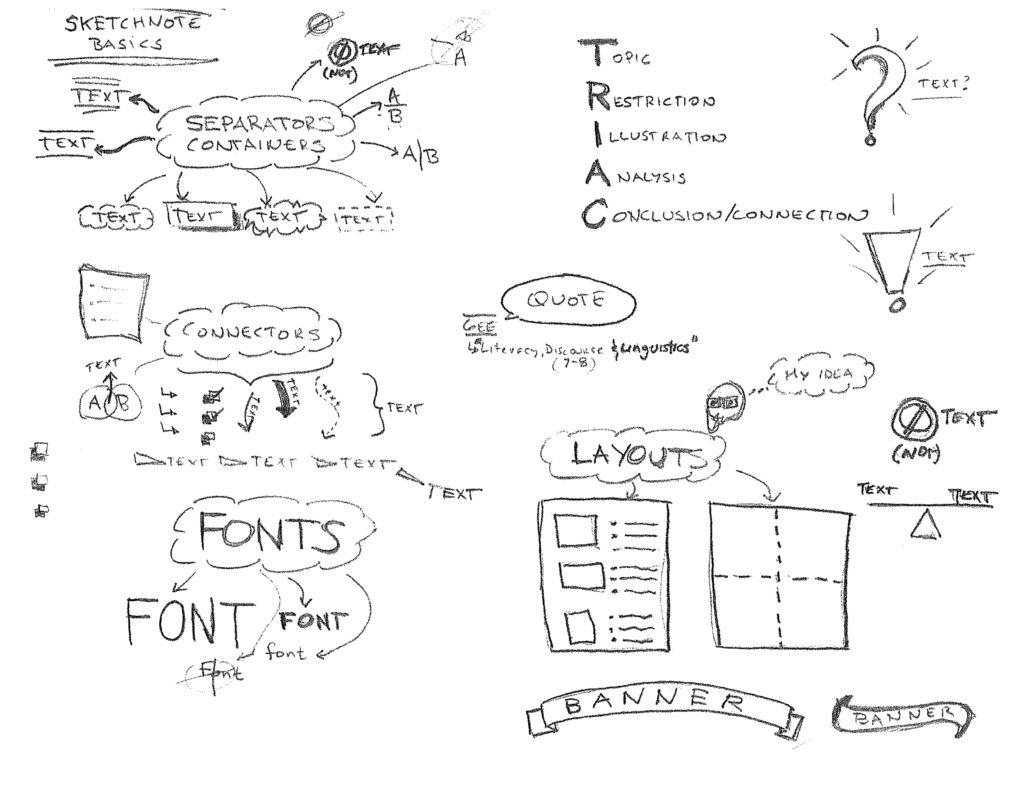 SKETCHNOTE
BASICS
TEXT
(NOT)
A
TEXT
TEXT
SEPARATORS
CONTAINERS
A
B
A|B
TEXT
TEXT
TEXT
TEXT
TOPIC
RESTRICTION
ILLUSTRATION
ANALYSIS
CONCLUSION/CONNECTION
TEXT?
TEXT
CONNECTORS
TEXT
A B
TEXT
TEXT
TEXT
TEXT
TEXT
TEXT
TEXT
TEXT
QUOTE
GEE
"Literacy, Discourse & Linguistics"
(7-8)
MY IDEA
LAYOUTS
TEXT
(NOT)
TEXT
TEXT
FONTS
FONT
FONT
font
Font
BANNER
BANNER